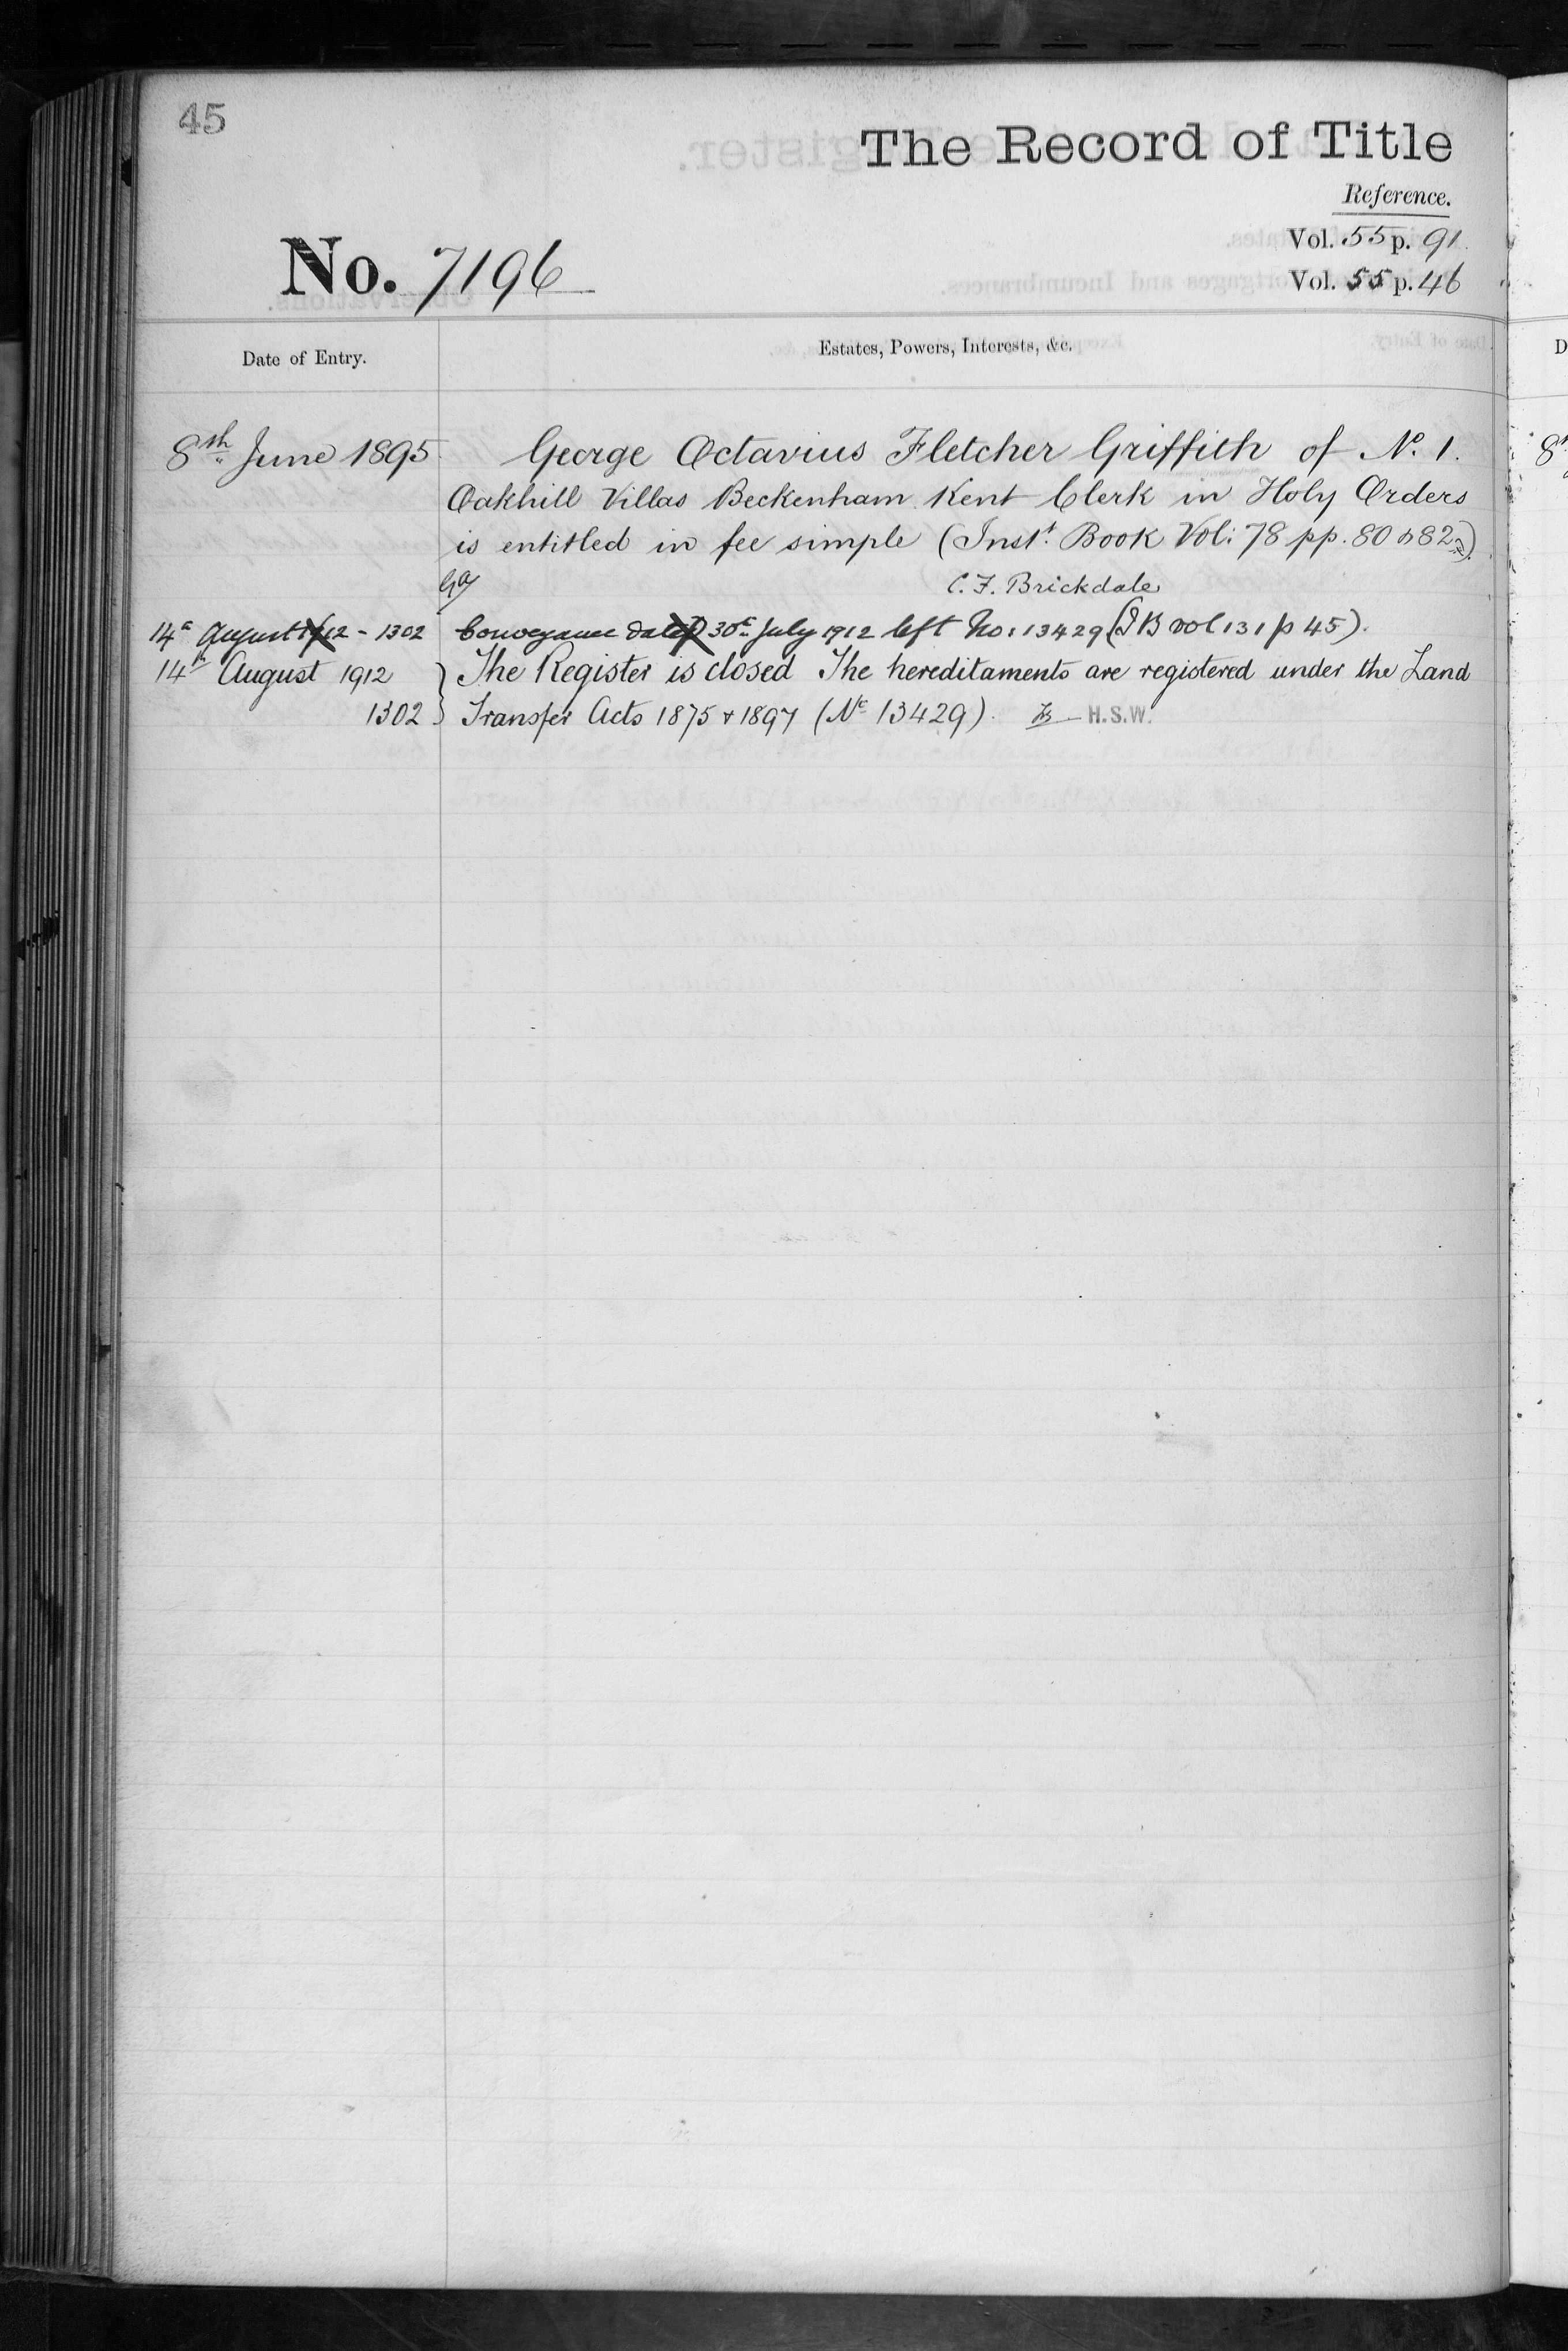 45
The Record of Title
Reference.
Vol. 55 p. 91
Vol. 55 p. 46
No. 7196
Date of Entry.
Estates, Powers, Interests, &c.
8th June 1895
George Octavius Fletcher Griffith of No. 1.
Oakhill Villas Beckenham Kent Clerk in Holy Orders
is entitled in fee simple (Inst. Book Vol: 78 pp. 80 & 82).
C. F. Brickdale
14th August 1912 - 1302 Conveyance dated 30th July 1912 left No: 13429 (I B vol 131 p 45).
14th August 1912 } The Register is closed The hereditaments are registered under the Land
1302 } Transfer Acts 1875 & 1897 (No 13429). H.S.W.
8